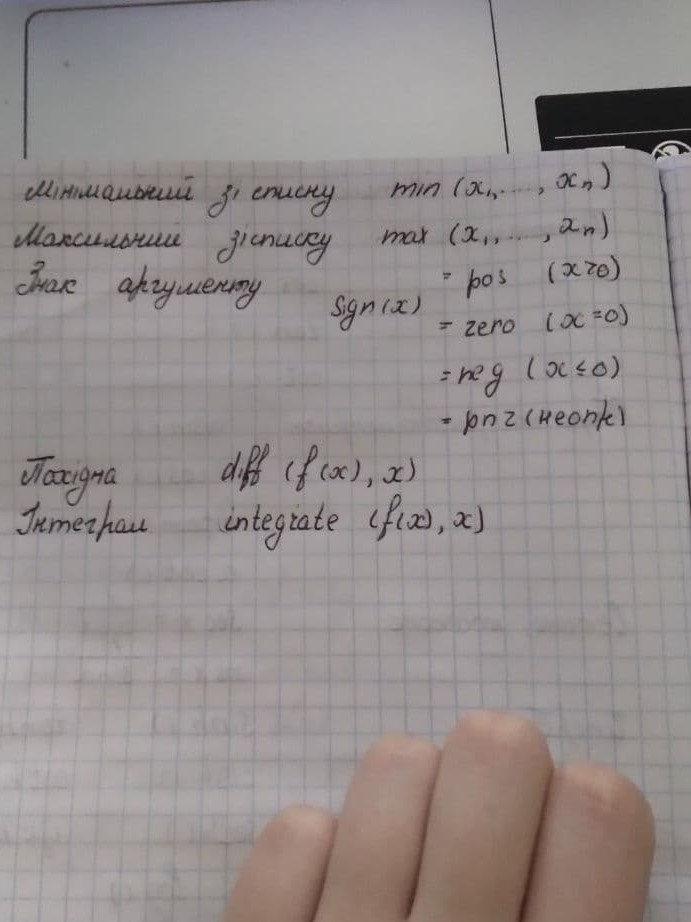 Мінімальний зі списку min (x₁, ..., xₙ)
Максильний зі списку max (x₁, ..., xₙ)
Знак аргументу sign(x) = pos (x>0)
= zero (x=0)
= neg (x≤0)
= pnz (неопр)
Похідна diff (f(x), x)
Інтеграл integrate (f(x), x)